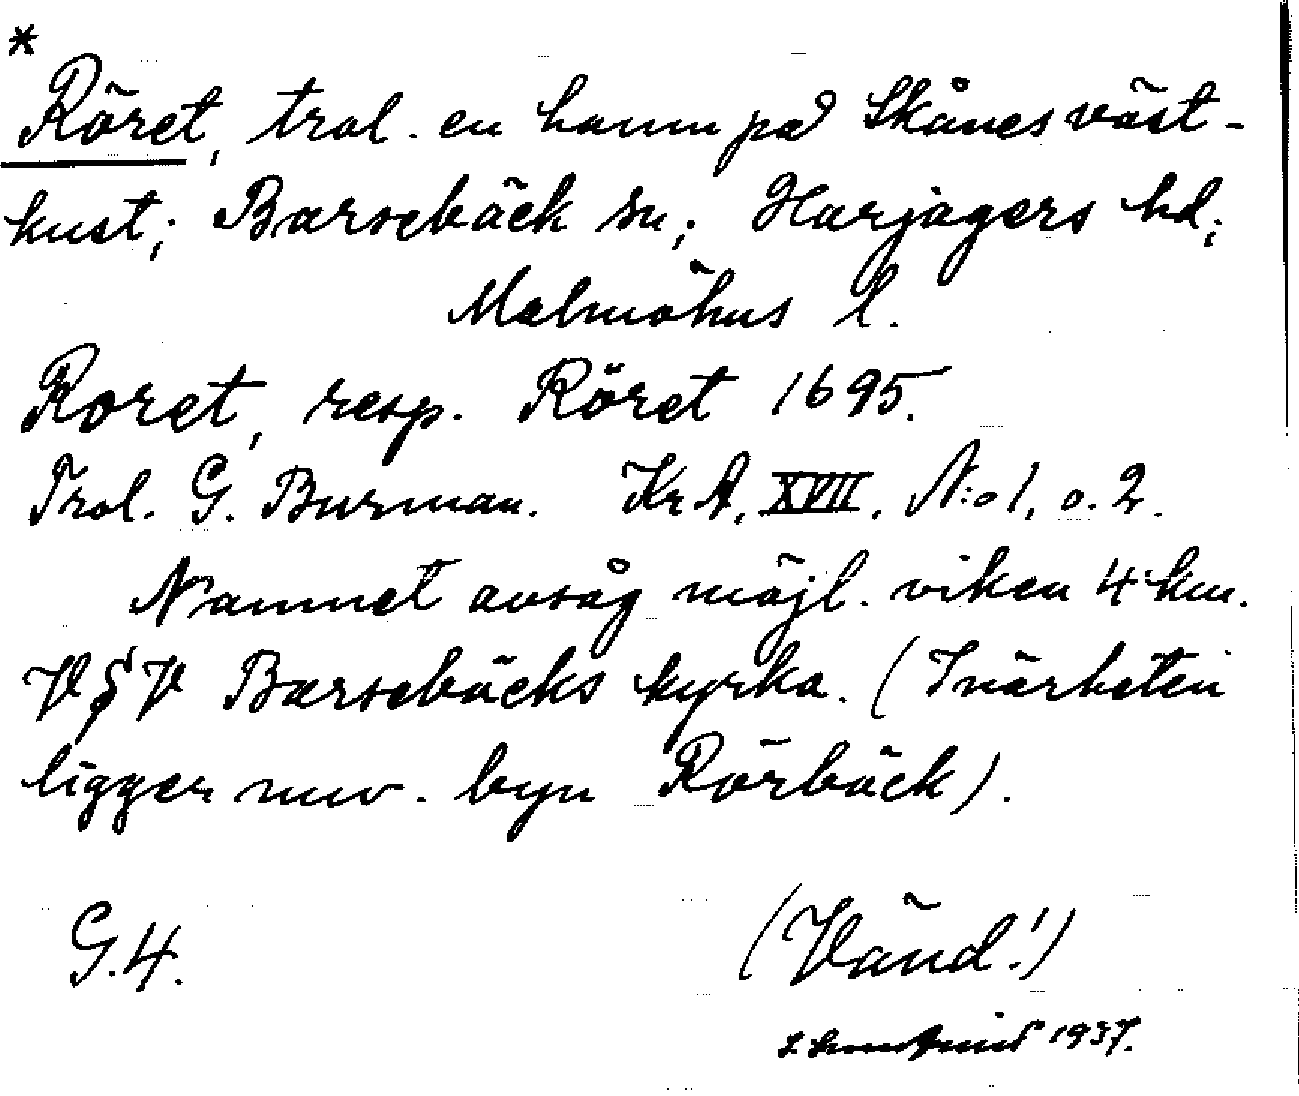 *
Röret, trol. en hamn på Skånes väst-
kust; Barsebäck sn; Harjagers hd;
Malmöhus l.
Roret, resp. Röret 1695.
Trol. G. Burman. KrA, XVII, N:o 1, o. 2.
Namnet avsåg möjl. viken 4 km.
V§V Barsebäcks kyrka. (I närheten
ligger nuv. byn Rörbäck).
G.4. (Vänd!)
1937.